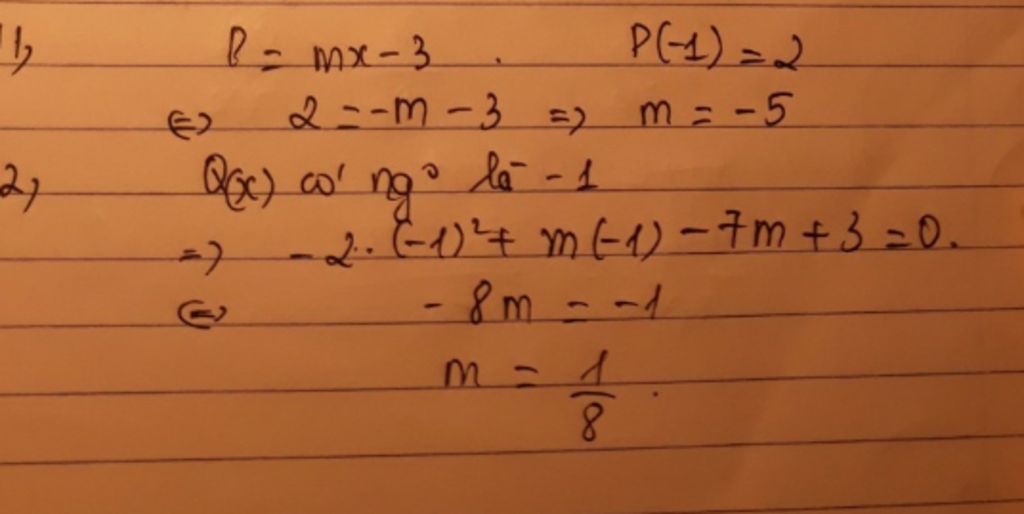 1, P = mx - 3 . P(-1) = 2
<=> 2 = -m - 3 => m = -5
2, Q(x) có ngº là -1
=> -2. (-1)² + m(-1) - 7m + 3 = 0.
<=> - 8m = -1
m = 1/8 .